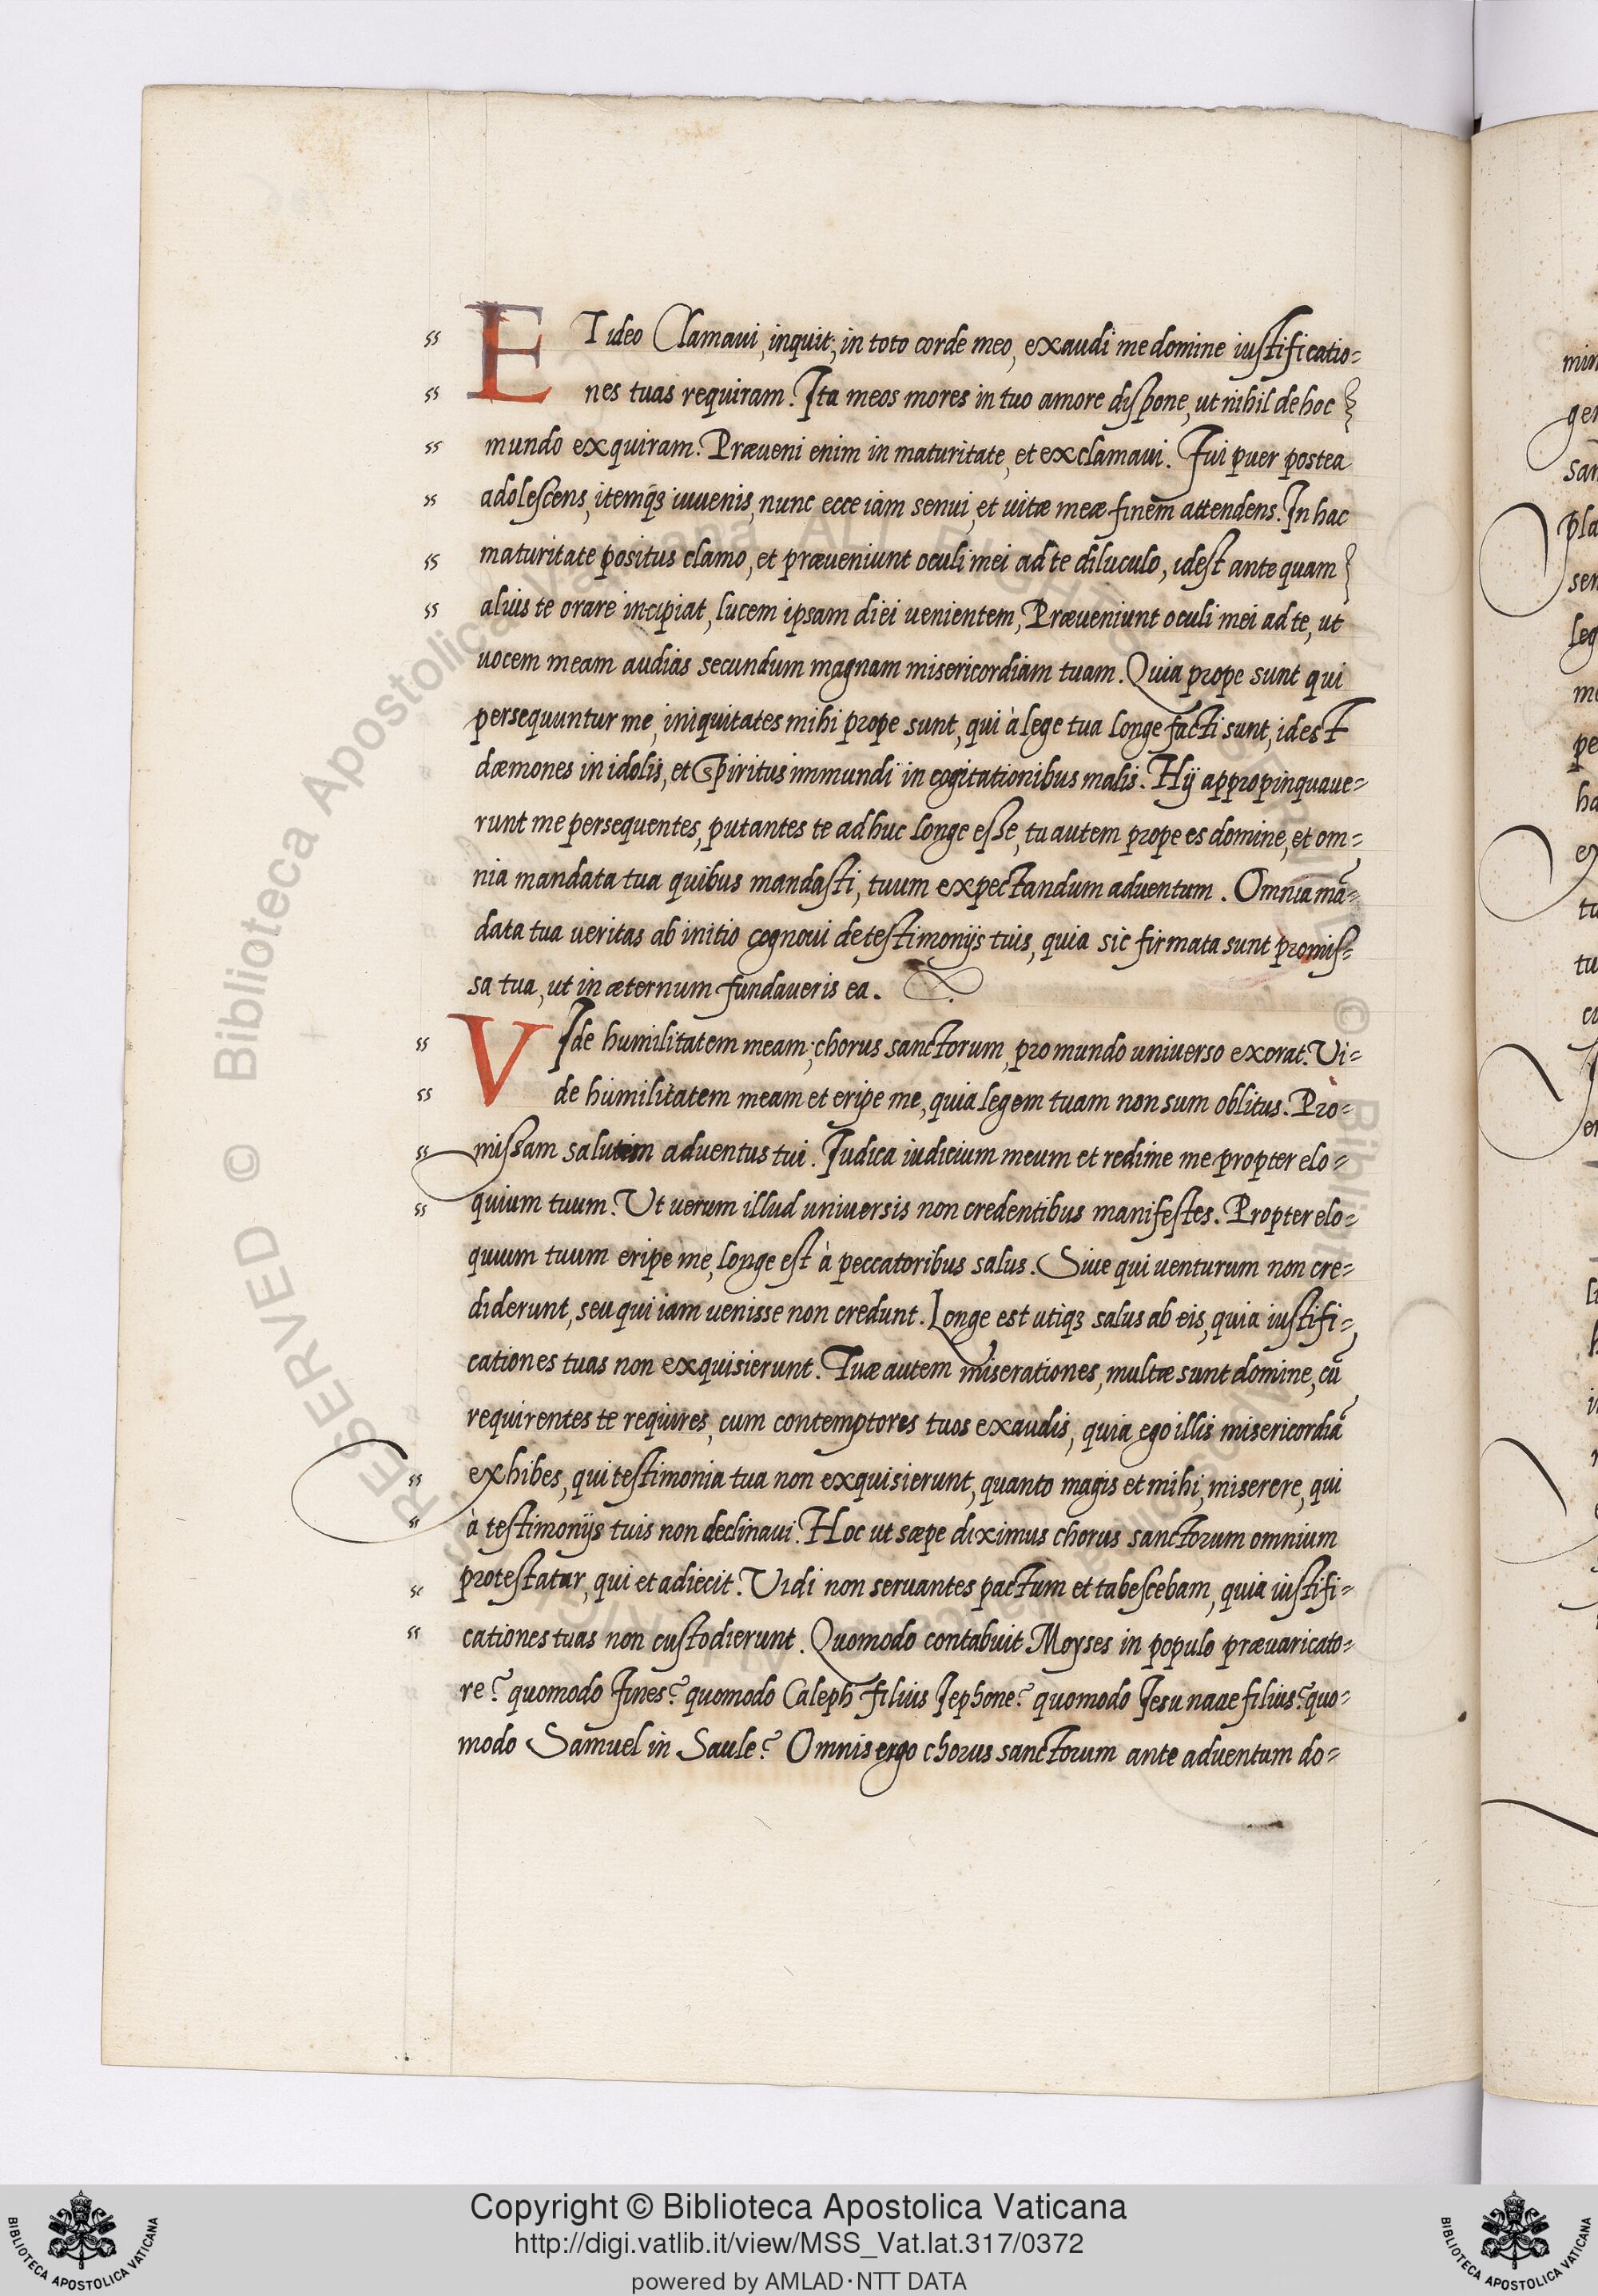 ETideo Clamaui, inquit; in toto corde meo, exaudi me domine iustificatio=
nes tuas requiram. Ita meos mores in tuo amore dispone, ut nihil de hoc
mundo exquiram. Præueni enim in maturitate, et exclamaui. Fui puer postea
adolescens, itemq3 iuuenis, nunc ecce iam senui, et uitæ meæ finem attendens. In hac
maturitate positus clamo, et præueniunt oculi mei ad te diluculo, idest ante quam
aluis te orare incipiat, lucem ipsam diei uenientem, Præueniunt oculi mei ad te, ut
uocem meam audias secundum magnam misericordiam tuam. Quia prope sunt qui
persequuntur me, iniquitates mihi prope sunt, qui à lege tua longe facti sunt, idest
dæmones in idolis, et Spiritus immundi in cogitationibus malis. Hÿ appropinquaue=
runt me persequentes, putantes te adhuc longe esse, tu autem prope es domine, et om=
nia mandata tua quibus mandasti, tuum expectandum aduentum. Omnia mã=
data tua ueritas ab initio cognoui de testimonijs tuis, quia sic firmata sunt promis=
sa tua, ut in æternum fundaueris ea.
VIde humilitatem meam; chorus sanctorum, pro mundo uniuerso exorat. Vi=
de humilitatem meam et eripe me, quia legem tuam non sum oblitus. Pro=
missam salutem aduentus tui. Iudica iudicium meum et redime me propter elo=
quium tuum. Ut uerum illud uniuersis non credentibus manifestes. Propter elo=
quium tuum eripe me, longe est à peccatoribus salus. Siue qui uenturum non cre=
diderunt, seu qui iam uenisse non credunt. Longe est utiq3 salus ab eis, quia iustifi=
cationes tuas non exquisierunt. Tuæ autem miserationes, multæ sunt domine, cũ
requirentes te requires, cum contemptores tuos exaudis, quia ego illis misericordiã
exhibes, qui testimonia tua non exquisierunt, quanto magis et mihi, miserere, qui
à testimonijs tuis non declinaui. Hoc ut sæpe diximus chorus sanctorum omnium
protestatur, qui et adiecit. Vidi non seruantes pactum et tabescebam, quia iustifi=
cationes tuas non custodierunt. Quomodo contabuit Moyses in populo præuaricato=
re? quomodo Fines? quomodo Caleph filius Iephone? quomodo Iesu naue filius? quo=
modo Samuel in Saule? Omnis ergo chorus sanctorum ante aduentum do=
Copyright © Biblioteca Apostolica Vaticana
http://digi.vatlib.it/view/MSS_Vat.lat.317/0372
powered by AMLAD·NTT DATA
BIBLIOTECA APOSTOLICA VATICANA
BIBLIOTECA APOSTOLICA VATICANA